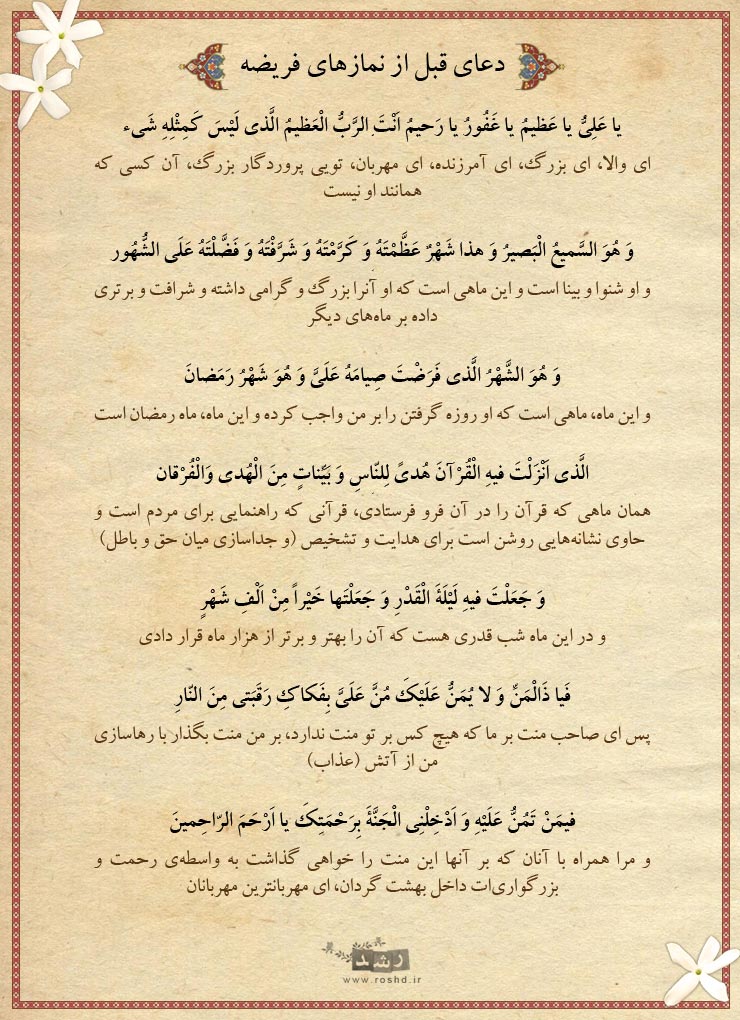 دعای قبل از نمازهای فریضه
یا عَلِیُّ یا عَظیمُ یا غَفُورُ یا رَحیمُ اَنْتَ الرَّبُّ الْعَظیمُ الَّذی لَیْسَ کَمِثْلِهِ شَیء
ای والا، ای بزرگ، ای آمرزنده، ای مهربان، تویی پروردگار بزرگ، آن کسی که
همانند او نیست
وَ هُوَ السَّمیعُ الْبَصیرُ وَ هذا شَهْرٌ عَظَّمْتَهُ وَ کَرَّمْتَهُ وَ شَرَّفْتَهُ وَ فَضَّلْتَهُ عَلَی الشُّهُور
و او شنوا و بینا است و این ماهی است که او آنرا بزرگ و گرامی داشته و شرافت و برتری
داده بر ماه‌های دیگر
وَ هُوَ الشَّهْرُ الَّذی فَرَضْتَ صِیامَهُ عَلَیَّ وَ هُوَ شَهْرُ رَمَضانَ
و این ماه، ماهی است که او روزه گرفتن را بر من واجب کرده و این ماه، ماه رمضان است
الَّذی اَنْزَلْتَ فیهِ الْقُرْآنَ هُدیً لِلنّاسِ وَ بَیِّناتٍ مِنَ الْهُدی وَالْفُرْقان
همان ماهی که قرآن را در آن فرو فرستادی، قرآنی که راهنمایی برای مردم است و
حاوی نشانه‌هایی روشن است برای هدایت و تشخیص (و جداسازی میان حق و باطل)
وَ جَعَلْتَ فیهِ لَیْلَةَ الْقَدْرِ وَ جَعَلْتَها خَیْراً مِنْ اَلْفِ شَهْرٍ
و در این ماه شب قدری هست که آن را بهتر و برتر از هزار ماه قرار دادی
فَیا ذَالْمَنِّ وَ لا یُمَنُّ عَلَیْکَ مُنَّ عَلَیَّ بِفَکاکِ رَقَبَتی مِنَ النّارِ
پس ای صاحب منت بر ما که هیچ کس بر تو منت ندارد، بر من منت بگذار با رهاسازی
من از آتش (عذاب)
فیمَنْ تَمُنُّ عَلَیْهِ وَ اَدْخِلْنِی الْجَنَّةَ بِرَحْمَتِکَ یا اَرْحَمَ الرّاحِمینَ
و مرا همراه با آنان که بر آنها این منت را خواهی گذاشت به واسطه‌ی رحمت و
بزرگواری‌ات داخل بهشت گردان، ای مهربانترین مهربانان
رشد
www.roshd.ir